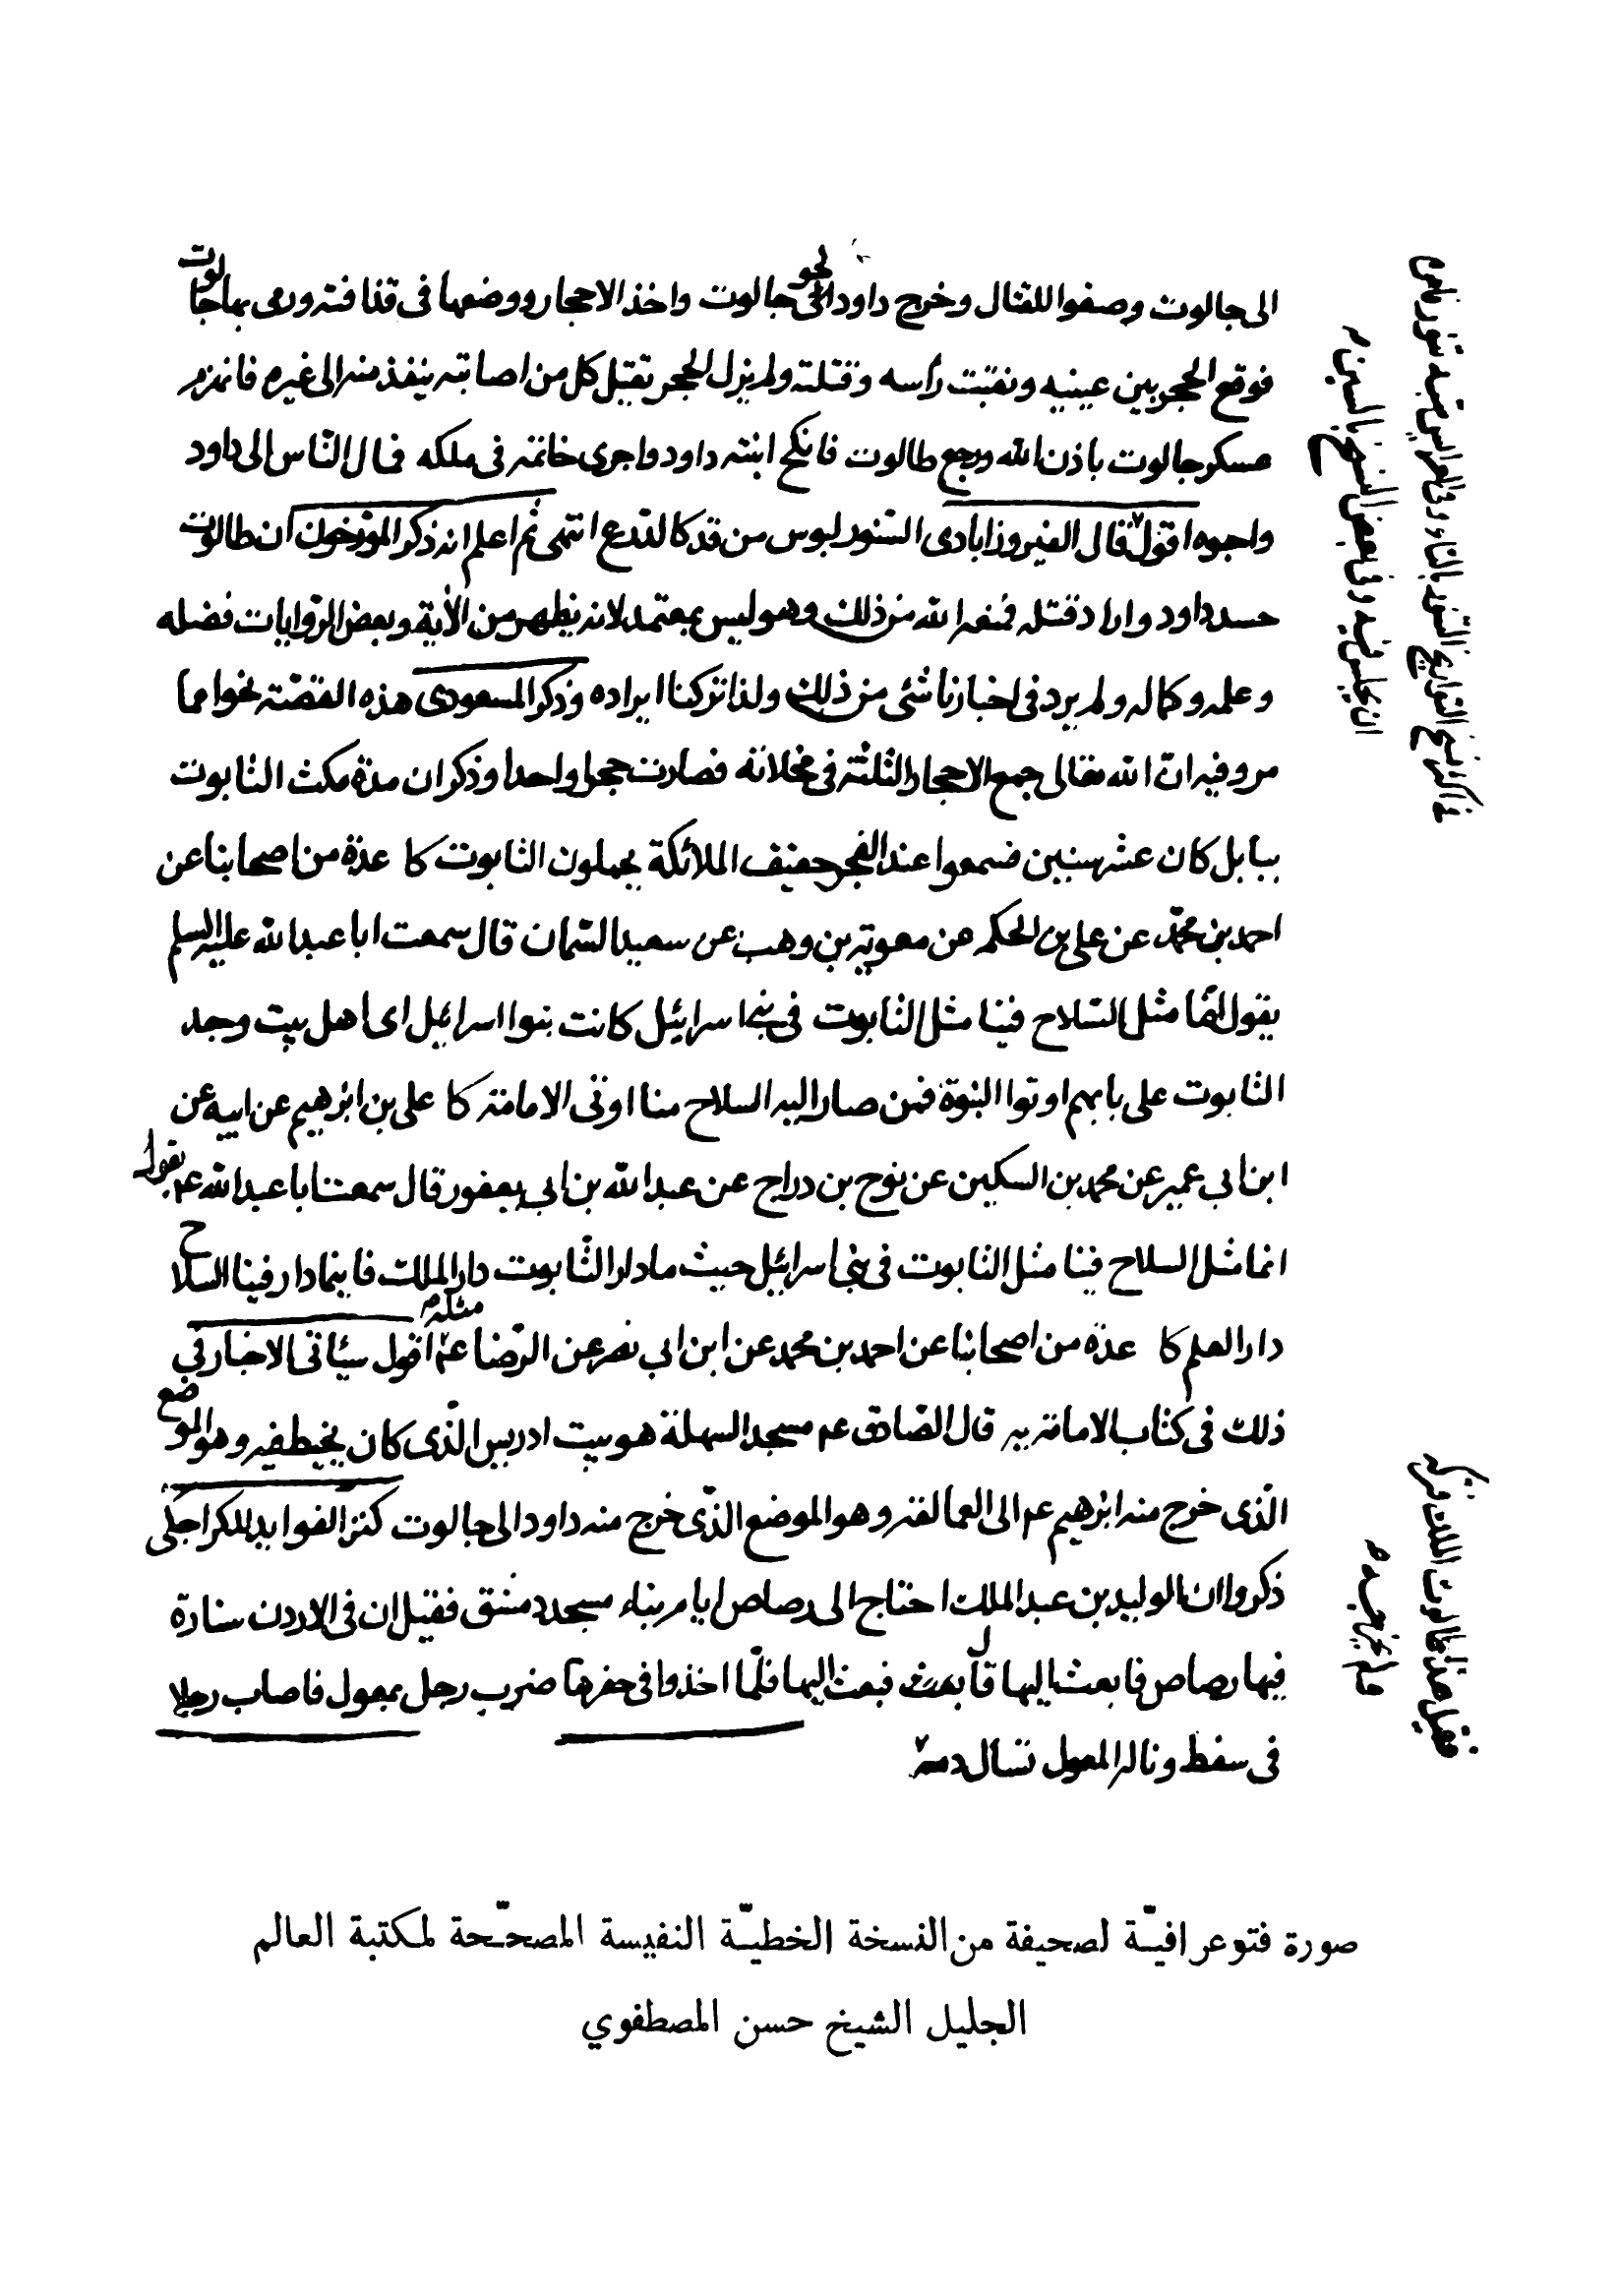 الى جالوت وصفوا للقتال وخرج داود نحو جالوت واخذ الاحجار ووضعها فى قذافته ورمى بها جالوت
فوقع الحجر بين عينيه ونقبت رأسه وقتلته ولم يزل الحجر تقتل كل من اصابته ينفذ منه الى غيره فانهزم
عسكر جالوت باذن الله ورجع طالوت فانكح ابنته داود واجرى خاتمه فى ملكه فمال النّاس الى داود
واحبوه اقول قال الفيروزابادى السّنور لبوس من قد كالدّرع انتهى ثم اعلم انه ذكر المؤرخون ان طالوت
حسد داود واراد قتله فمنعه الله من ذلك وهو ليس بمعتمد لانه يظهر من الأية وبعض الرّوايات فضله
وعلمه وكماله ولم يرد فى اخبارنا شئ من ذلك ولذا تركنا ايراده وذكر المسعودى هذه القصّة نحوا مما
مر وفيه انّ الله تعالى جمع الاحجار الثلثة فى مخلاته فصارت حجرا واحدا وذكر ان مدة مكث التابوت
ببابل كان عشر سنين فسمعوا عند الفجر حفيف الملائكة يحملون التابوت كا عدة من اصحابنا عن
احمد بن محمّد عن على بن الحكم عن معوية بن وهب عن سعيد السّمان قال سمعت ابا عبدالله عليه السلم
يقول انّما مثل السّلاح فينا مثل التابوت فى بنى اسرائيل كانت بنوا اسرائيل اى اهل بيت وجد
التابوت على بابهم اوتوا النبوّة فمن صار اليه السلاح منا اوتى الامامة كا على بن ابرهيم عن ابيه عن
ابن ابى عمير عن محمد بن السكين عن نوح بن دراج عن عبدالله بن ابى يعفور قال سمعت ابا عبدالله ع يقول
انما مثل السلاح فينا مثل التابوت فى بنى اسرائيل حيث ما دار التّابوت دار الملك فاينما دار فينا السلاح
دار العلم كا عدة من اصحابنا عن احمد بن محمد عن ابن ابى نصر عن الرّضا ع مثله اقول سيئاتى الاخبار فى
ذلك فى كتاب الامامة يه قال الصّادق ع مسجد السهلة هو بيت ادريس الّذى كان يخيط فيه وهو الموضع
الّذى خرج منه ابرهيم ع الى العمالقة وهو الموضع الّذى خرج منه داود الى جالوت كنز الفوايد للكراجكى
ذكروا ان الوليد بن عبد الملك احتاج الى رصاص ايام بناء مسجد دمشق فقيل ان فى الاردن منارة
فيها رصاص فابعث اليها قال بعث فبعث اليها فلمّا اخذوا فى حفرها ضرب رجل بمعول فاصاب رجلا
فى سفط وناله المعول فسال دمه
فقيل هذا طالوت الملك فتركه
صورة فتوغرافيّة لصحيفة من النسخة الخطيّة النفيسة المصحّحة لمكتبة العالم
الجليل الشيخ حسن المصطفوي